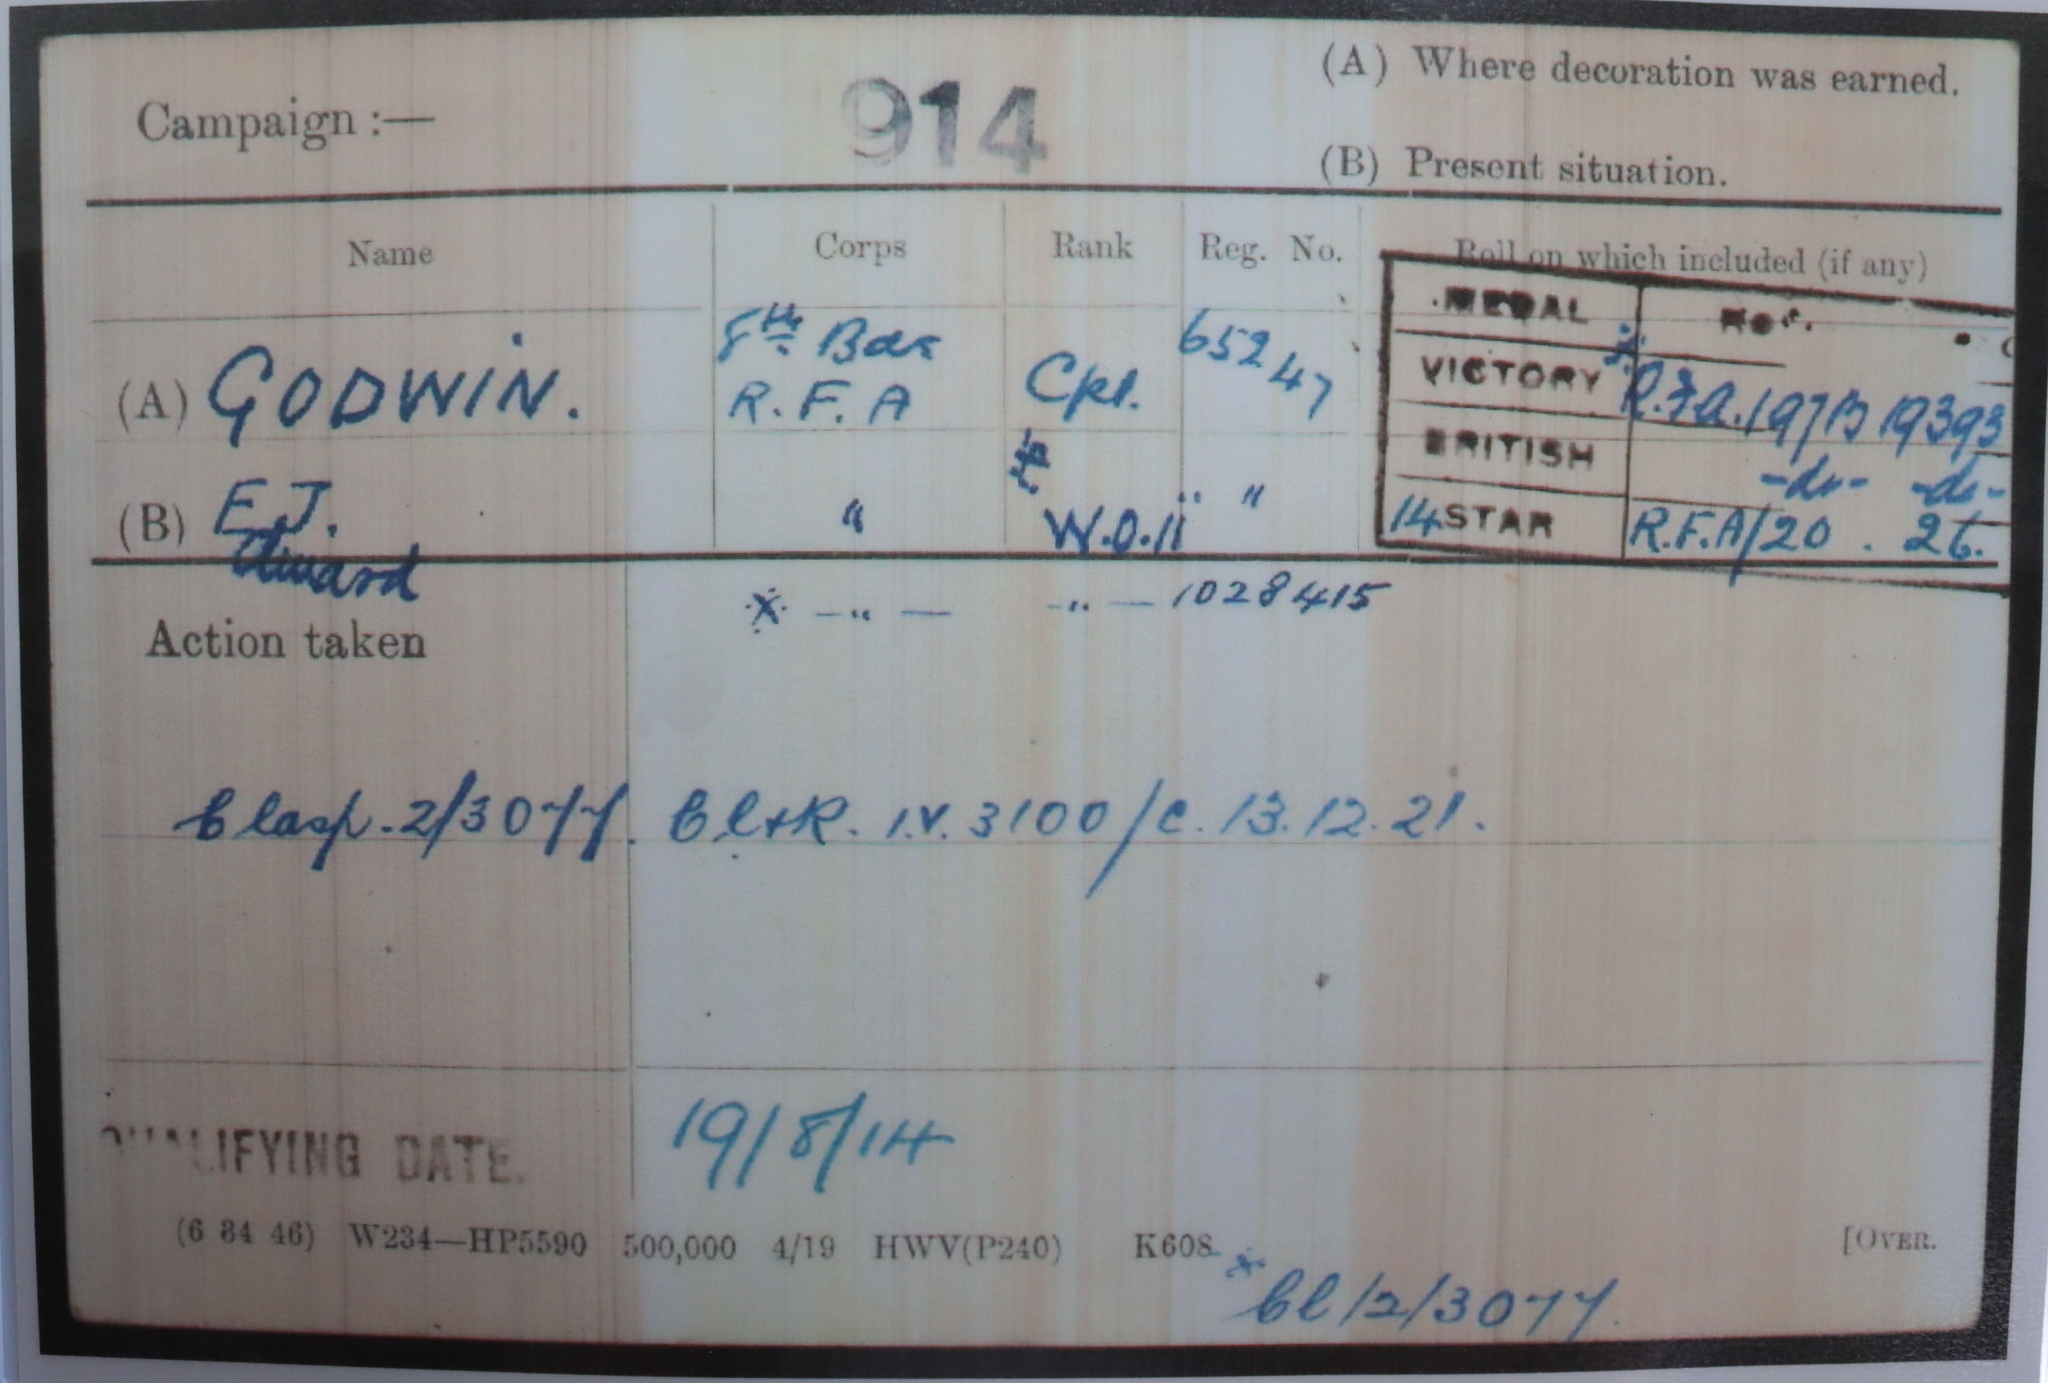 (A) Where decoration was earned.
Campaign :— 914
(B) Present situation.
Name Corps Rank Reg. No. Roll on which included (if any)
MEDAL
8th Bde 65247
(A) GODWIN. R.F.A Cpl. VICTORY R.F.A. 197B 19393
BRITISH -do- -do-
(B) E.J. " W.O.II " 14 STAR R.F.A/20. 26.
Edward
* —"— —"— 1028415
Action taken
Clasp. 2/3077. Cl+R. I.V. 3100/C. 13.12.21.
QUALIFYING DATE. 19/8/14
(6 34 46) W234—HP5590 500,000 4/19 HWV(P240) K608 [OVER.
* Cl/2/3077.